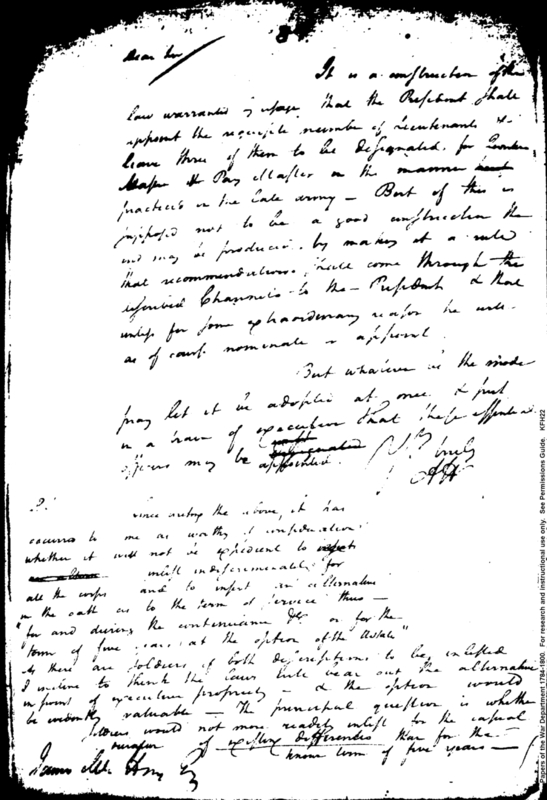 Dear Sir
It is a construction of the
law warranted by usage that the President shall
appoint the requisite number of Lieutenants &
leave three of them to be designated for Quarter
Master & Pay Master in the manner
practiced in the late army — But if this is
supposed not to be a good construction the
end may be produced by making it a rule
that recommendations shall come through the
Channels to the President & that
unless for some extraordinary reason he will
as of course nominate or appoint.
But whatever be the mode
pray let it be adopted at once & put
in a train of execution that these essential
officers may be appointed.
Yrs truly
AH
P.
Since writing the above, it has
occurred to me as worthy of consideration
whether it will not be expedient to
inlist indiscriminately for
all the corps and to insert an alternative
in the oath as to the term of service thus —
"for and during the continuance &c or for the
term of five years at the option of the UStates"
As there are soldiers of both descriptions to be inlisted
I incline to think the laws will bear out the alternative
in point of executive propriety — & the option would
be evidently valuable — The principal question is whether
Soldiers would not more readily inlist for the casual
of existing differences than for the
known term of five years —
James McHenry Esq
Papers of the War Department 1784-1800. For research and instructional use only. See Permissions Guide. KFH22